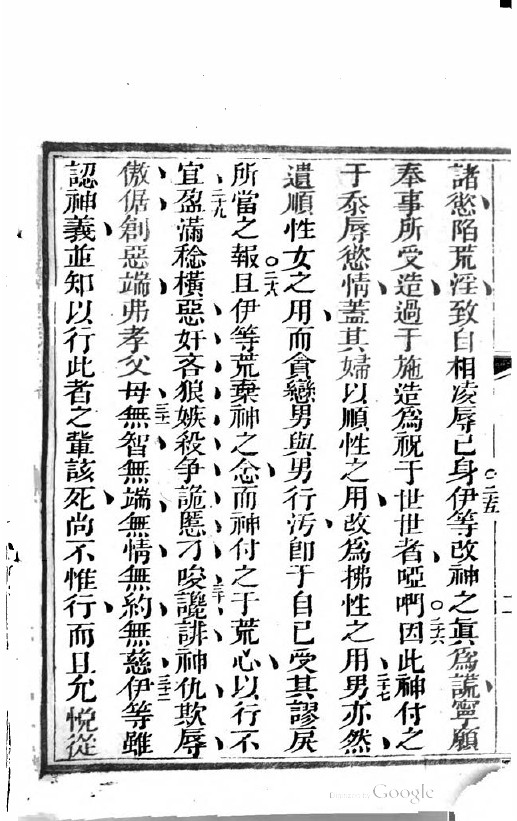 諸慾陷荒淫致自相凌辱己身伊等改神之眞爲謊寧願
二五
奉事所受造過于施造爲祝于世世者啞們因此神付之
二六
于忝辱慾情蓋其婦以順性之用改爲拂性之用男亦然
二七
遺順性女之用而貪戀男與男行汚卽于自己受其謬戾
所當之報且伊等荒棄神之念而神付之于荒心以行不
二八
宜盈滿稔橫惡奸吝狼嫉殺争詭慝刁唆讒誹神仇欺辱
二十九
三十
傲倨創惡端弗孝父母無智無端無情無約無慈伊等雖
三十一
三十二
認神義並知以行此者之輩該死尚不惟行而且允悅從
Google